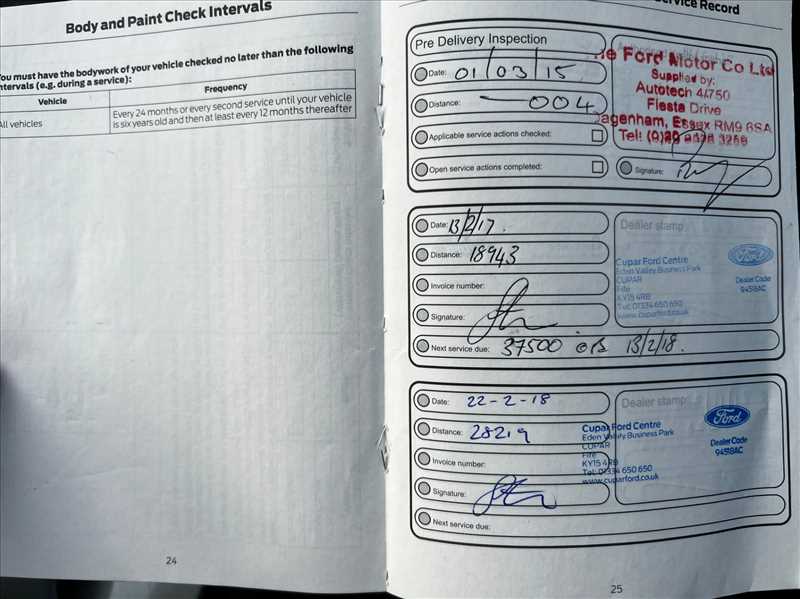 Body and Paint Check Intervals
You must have the bodywork of your vehicle checked no later than the following
intervals (e.g. during a service):
Vehicle Frequency
All vehicles Every 24 months or every second service until your vehicle
is six years old and then at least every 12 months thereafter
24
Service Record
Pre Delivery Inspection
Date: 01/03/15
Distance: 004
Applicable service actions checked:
Open service actions completed:
The Ford Motor Co Ltd
Supplied by:
Autotech 44750
Fiesta Drive
Dagenham, Essex RM9 6SA
Signature:
Date: 13/2/17.
Distance: 18943
Invoice number:
Signature:
Next service due: 37500 OR 13/2/18.
Dealer stamp
Cupar Ford Centre
Eden Valley Business Park
CUPAR
Fife
KY15 4RB
Tel: 01334 650 650
www.cuparford.co.uk
Ford
Dealer Code
94518AC
Date: 22-2-18
Distance: 28219
Invoice number:
Signature:
Next service due:
Dealer stamp
Cupar Ford Centre
Eden Valley Business Park
CUPAR
Fife
KY15 4RB
Tel: 01334 650 650
www.cuparford.co.uk
Ford
Dealer Code
94518AC
25